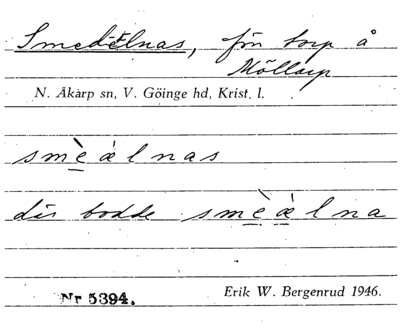 Smedelnas, för torp å
Möllarp
N. Åkarp sn, V. Göinge hd, Krist. l.
smèælnas
där bodde smèælna
Nr 5394.
Erik W. Bergenrud 1946.